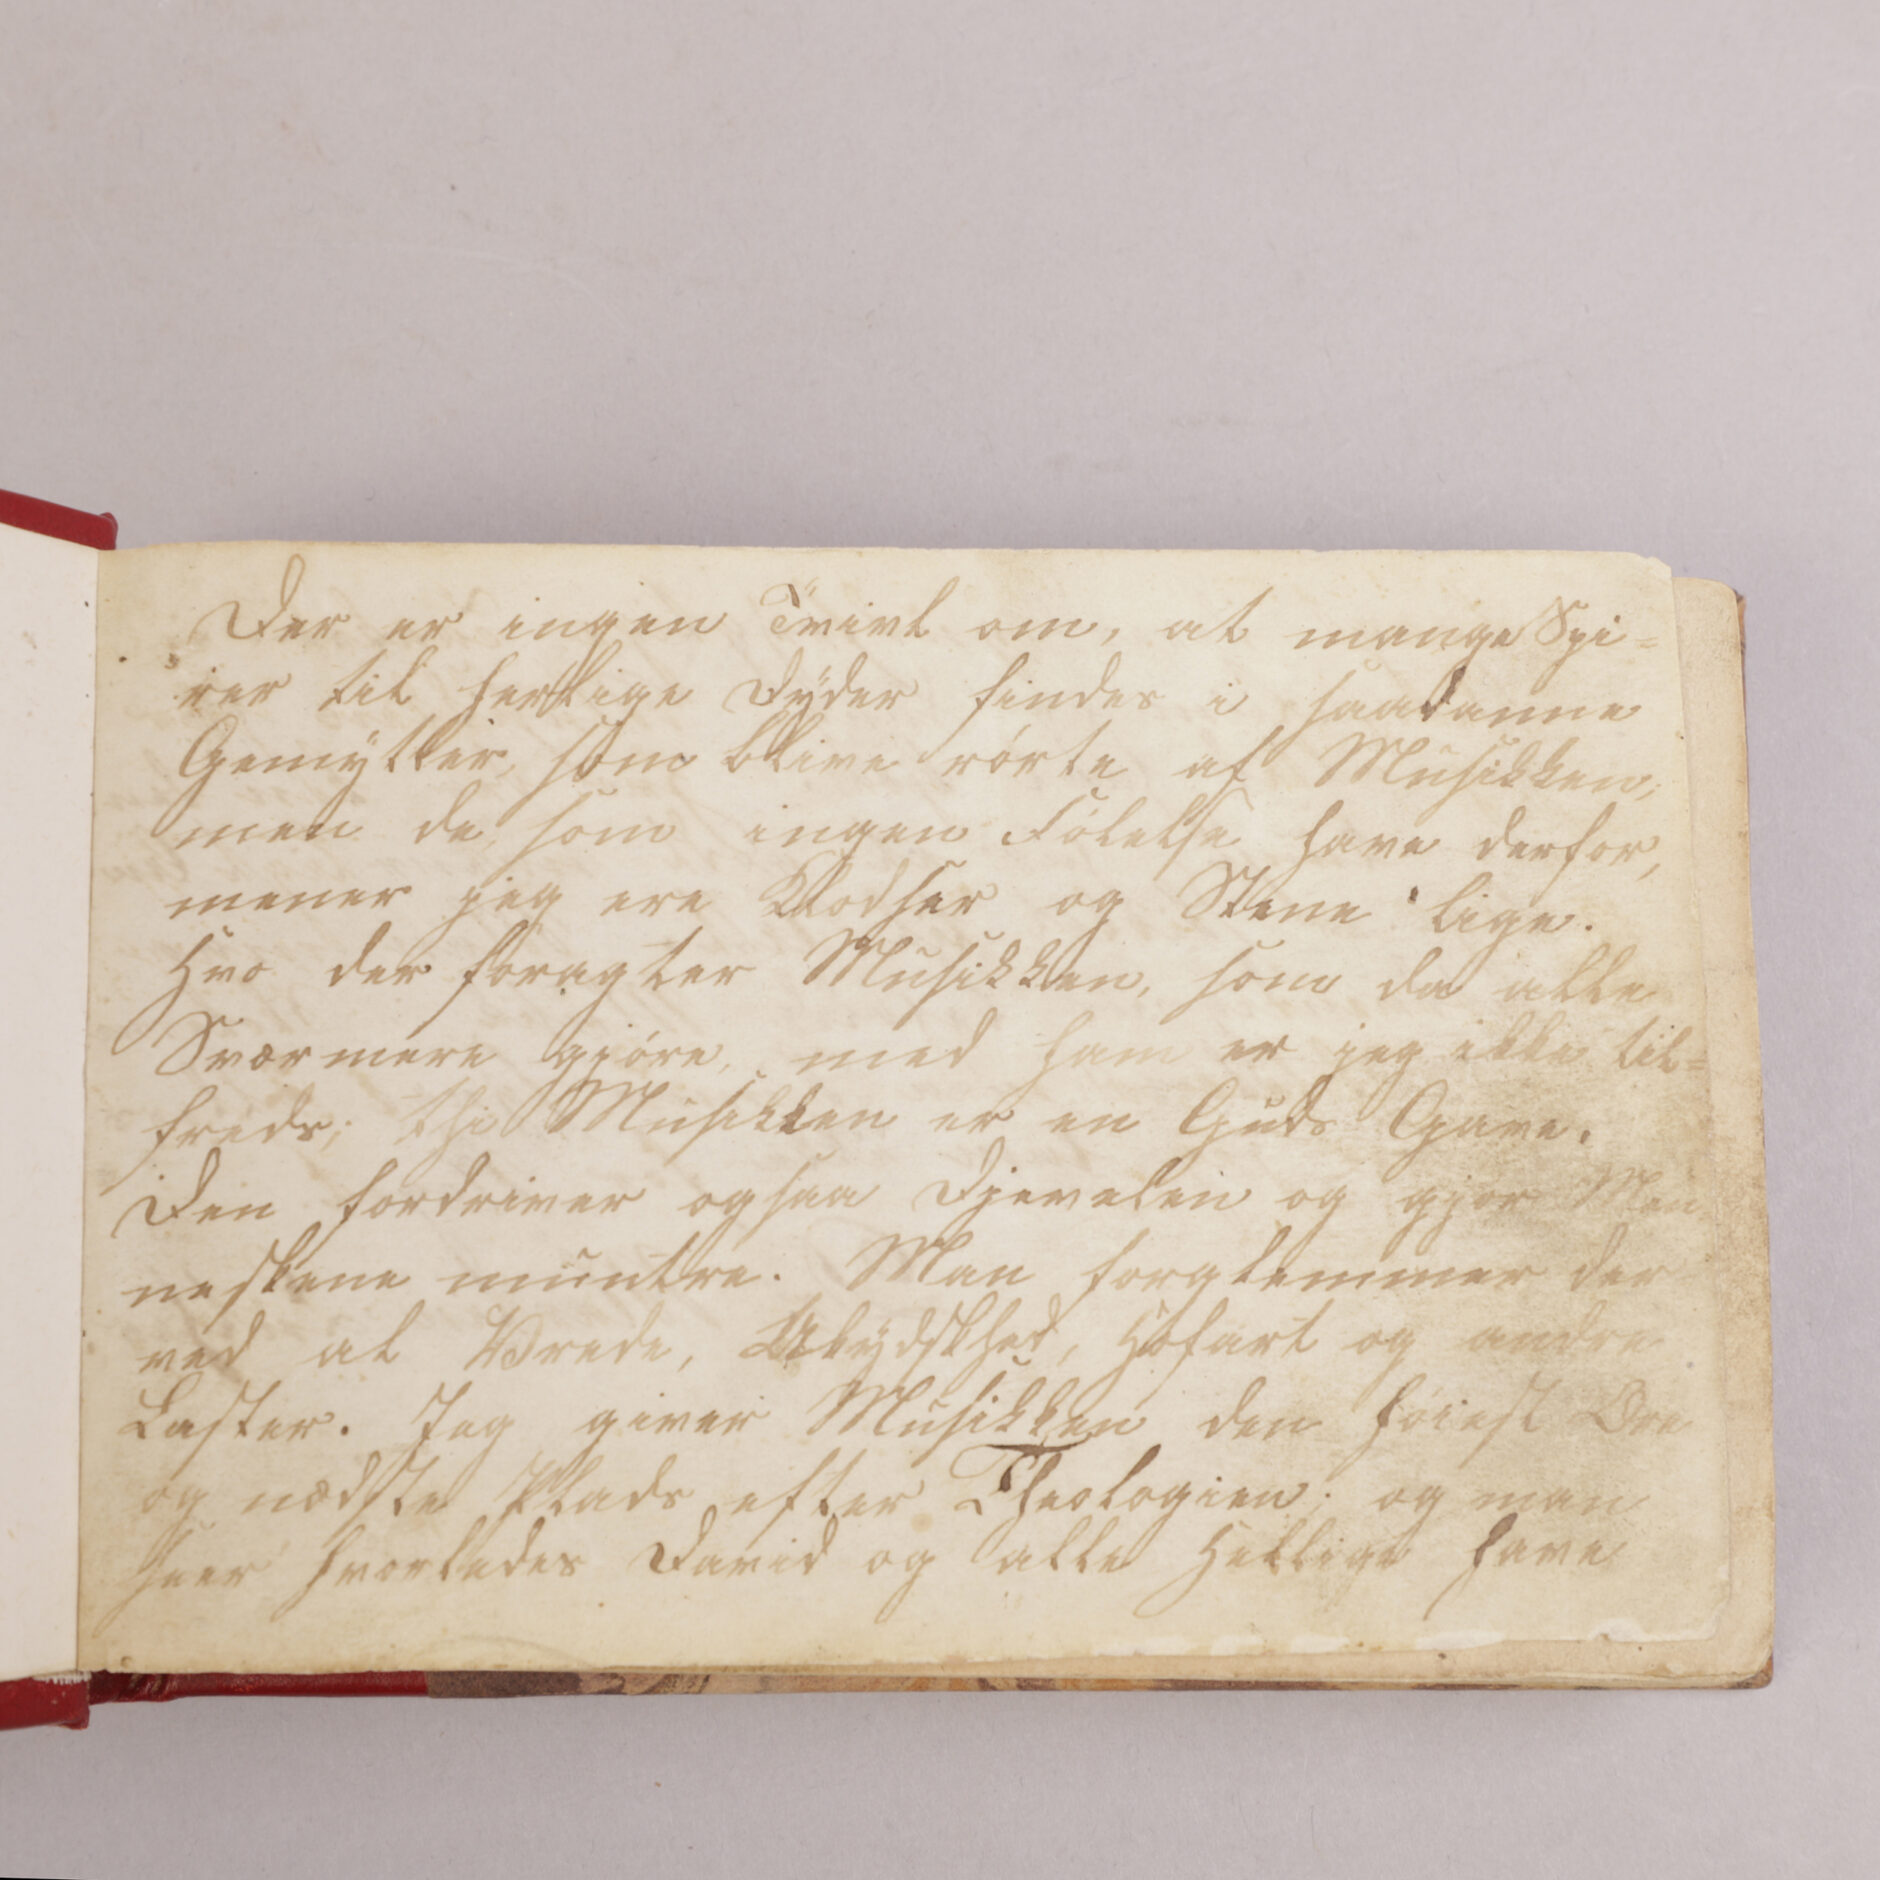 Der er ingen Tvivl om, at mange Spi=
rer til herlige Dyder findes i saadanne
Gemytter, som blive rørte af Musikken;
men de, som ingen Følelse have derfor,
mener jeg ere Klodser og Stene lige.
Hvo der foragter Musikken, som da alle
Sværmere gjøre, med ham er jeg ikke til=
freds; thi Musikken er en Guds Gave.
Den fordriver ogsaa Djevelen og gjør Men
neskene muntre. Man forglemmer der
ved al Vrede, Ukydskhed, Hofart og andre
Laster. Jeg giver Musikken den høiest Ære
og nædste Plads efter Theologien; og man
seer hvorledes David og alle Hellige have